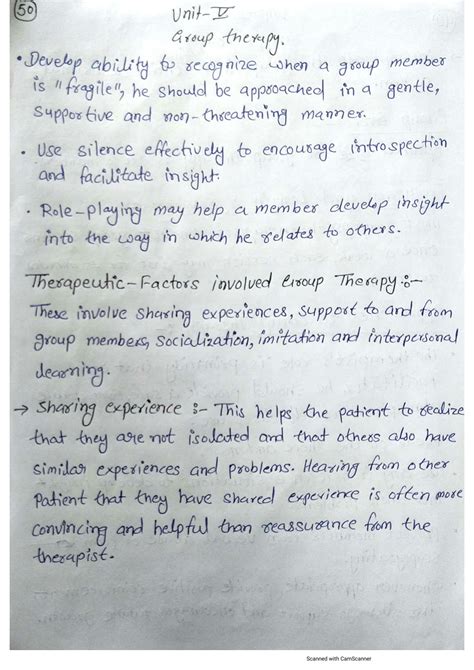 50
Unit-V
Group therapy.
• Develop ability to recognize when a group member
is "fragile", he should be approached in a gentle,
supportive and non-threatening manner.
• Use silence effectively to encourage introspection
and facilitate insight.
• Role-playing may help a member develop insight
into the way in which he relates to others.
Therapeutic-Factors involved Group Therapy :-
These involve sharing experiences, support to and from
group members, socialization, imitation and interpersonal
learning.
→ Sharing experience :- This helps the patient to realize
that they are not isolated and that others also have
similar experiences and problems. Hearing from other
patient that they have shared experience is often more
convincing and helpful than reassurance from the
therapist.
Scanned with CamScanner